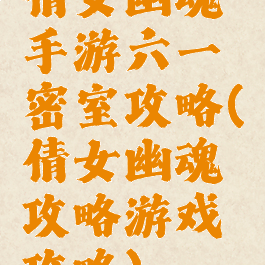 倩女幽魂
手游六一
密室攻略(
倩女幽魂
攻略游戏
攻略)